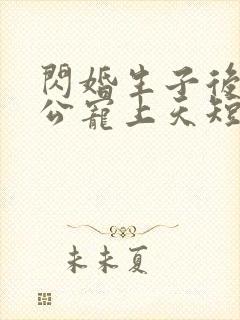 閃婚生子後
公寵上天短
未未夏